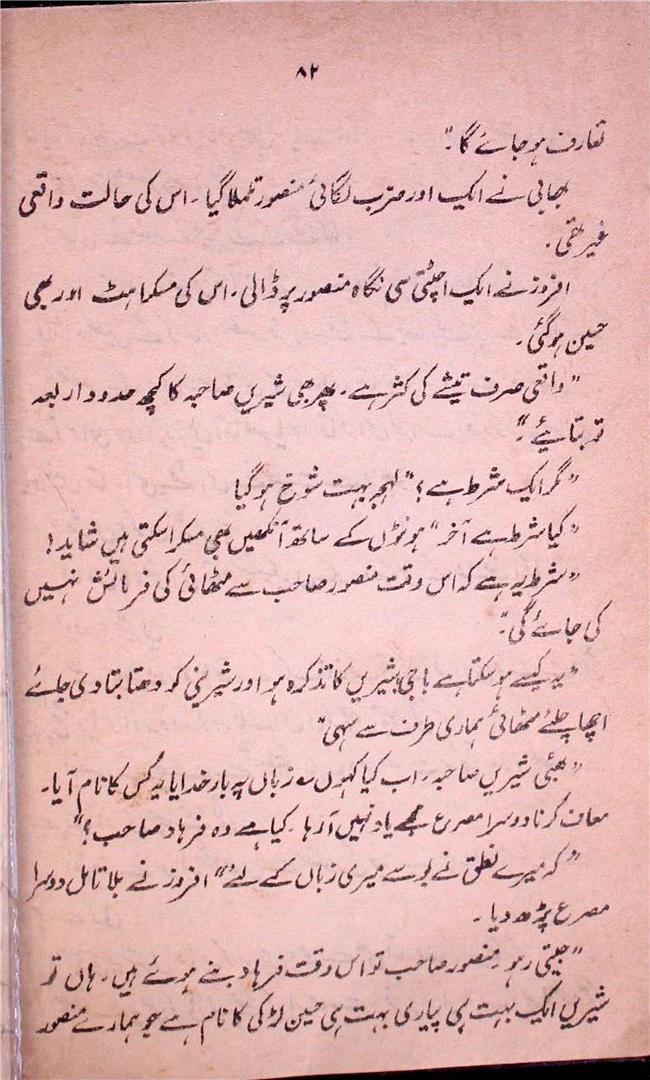 ۸۲
تعارف ہو جائے گا۔"
بھابی نے ایک اور ضرب لگائی منصور تلملا گیا۔ اس کی حالت واقعی
غیر تھی۔
افروز نے ایک اچٹتی سی نگاہ منصور پر ڈالی۔ اس کی مسکراہٹ اور بھی
حسین ہو گئی۔
"واقعی صرف تیشے کی کثر ہے۔ پھر بھی شیریں صاحبہ کا کچھ حدود اربعہ
تو بتائیے۔"
"مگر ایک شرط ہے؟" لہجہ بہت شوخ ہو گیا
"کیا شرط ہے آخر" ہونٹوں کے ساتھ آنکھیں بھی مسکرا سکتی ہیں شاید!
"شرط یہ ہے کہ اس وقت منصور صاحب سے مٹھائی کی فرمائش نہیں
کی جائے گی۔"
"یہ کیسے ہو سکتا ہے باجی شیریں کا تذکرہ ہو اور شیرینی کو دھتا بتا دی جائے
اچھا چلئے مٹھائی ہماری طرف سے سہی"
"بھئی شیریں صاحبہ۔ اب کیا کہوں ؎ زباں پہ بار خدایا یہ کس کا نام آیا۔
معاف کرنا دوسرا مصرع مجھے یاد نہیں آ رہا۔ کیا ہے وہ فرہاد صاحب؟"
"کہ میرے نطق نے بوسے میری زباں کے لئے" افروز نے بلا تامل دوسرا
مصرع پڑھ دیا۔
"جیتی رہو۔ منصور صاحب تو اس وقت فرہاد بنے ہوئے ہیں۔ ہاں تو
شیریں ایک بہت ہی پیاری بہت ہی حسین لڑکی کا نام ہے جو ہمارے منصور